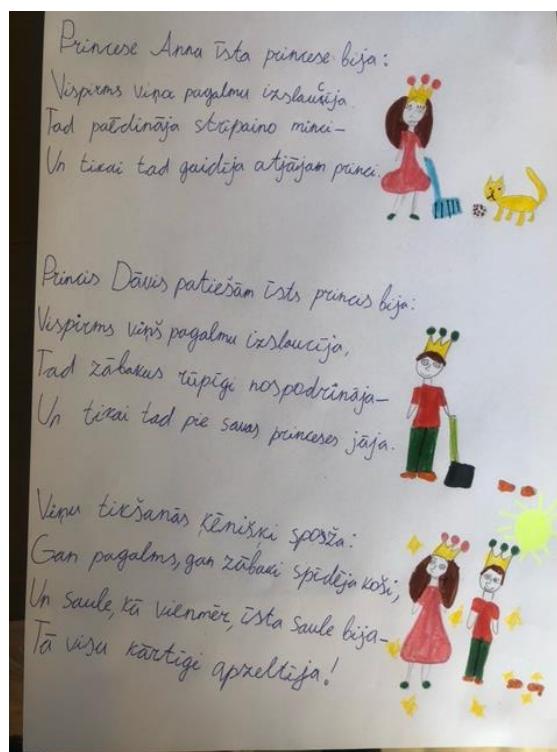 Princese Anna īsta princese bija:
Vispirms viņa pagalmu izslaucīja.
Tad paēdināja strīpaino minci-
Un tikai tad gaidīja atjājam princi.
Princis Dāvis patiešām īsts princis bija:
Vispirms viņš pagalmu izslaucīja,
Tad zābakus rūpīgi nospodrināja-
Un tikai tad pie savas princeses jāja.
Viņu tikšanās ķēnišķi spoža:
Gan pagalms, gan zābaki spīdēja koši,
Un saule, kā vienmēr, īsta saule bija-
Tā visu kārtīgi apzeltīja!